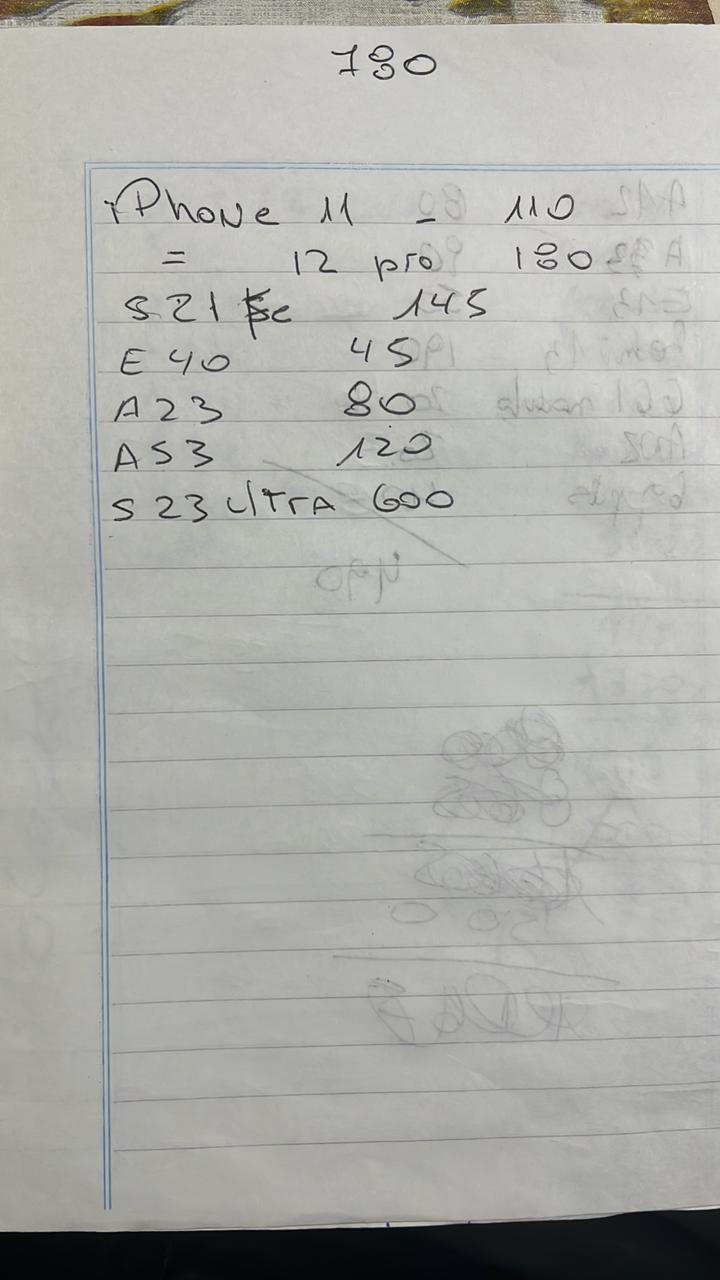 780
iPhone 11 - 110
= 12 pro 180
S 21 Fe 145
E 40 45
A 23 80
A 53 120
S 23 Ultra 600
490